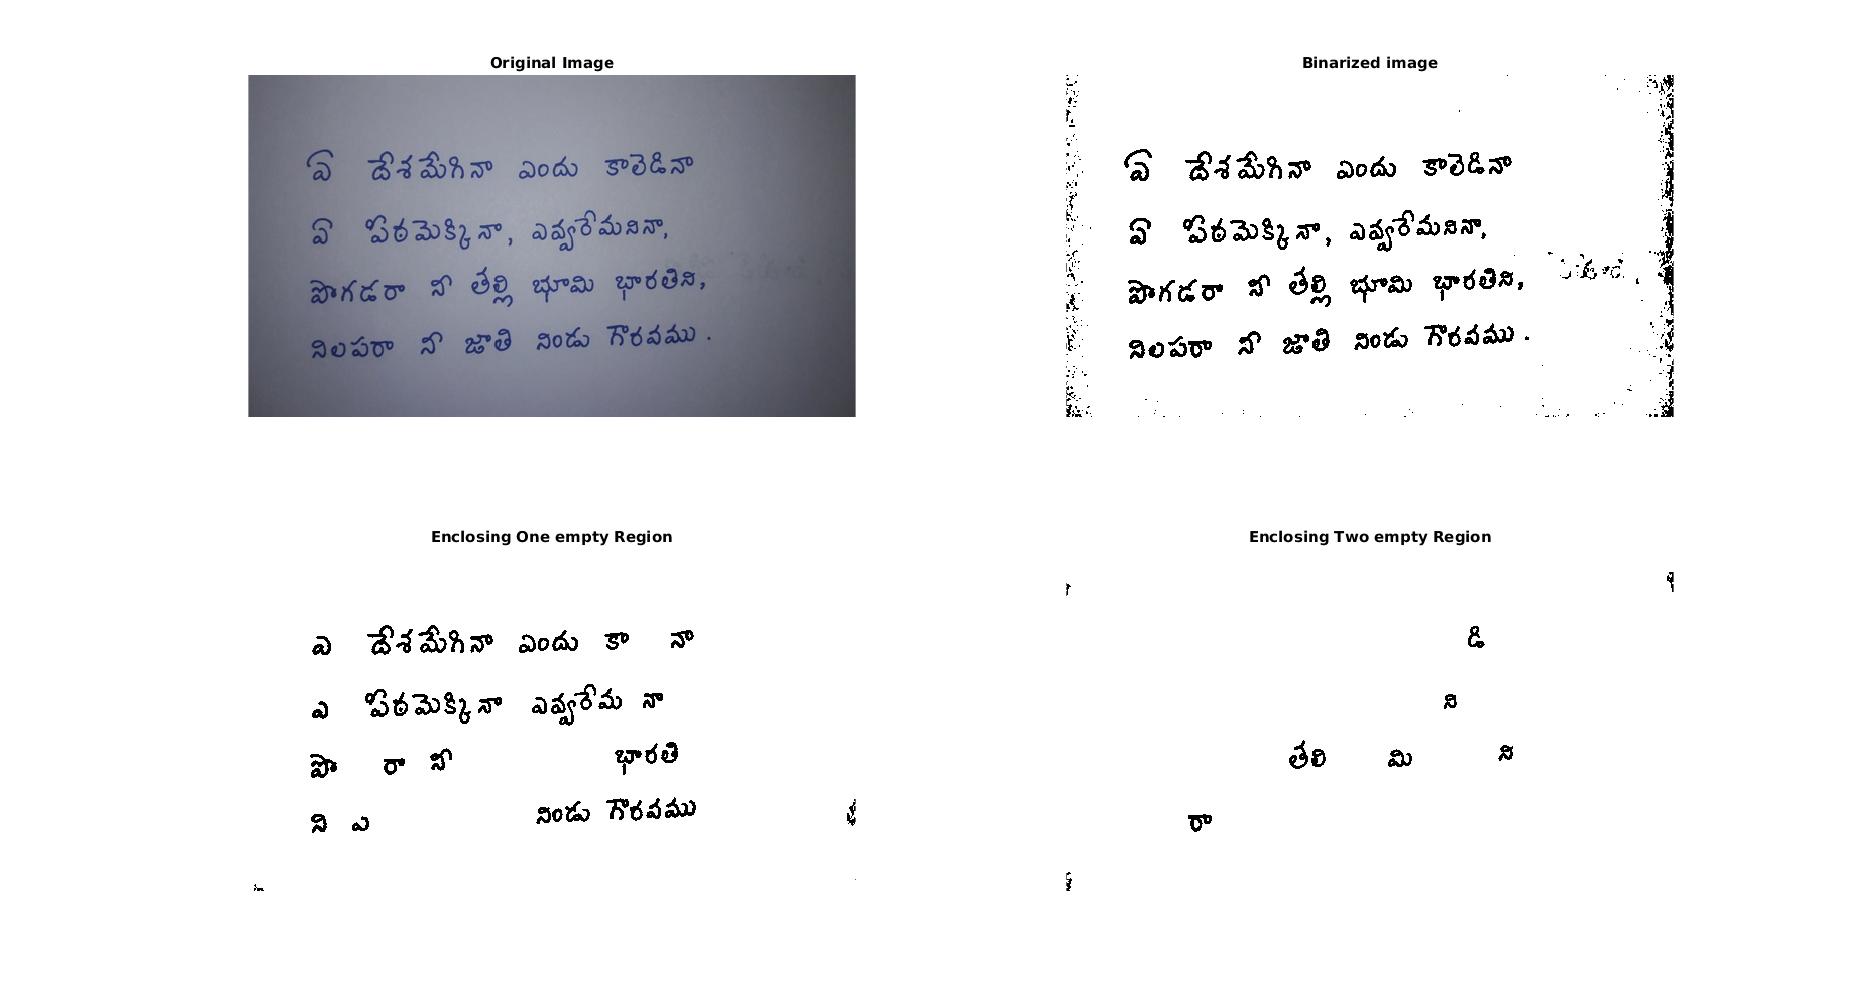 Original Image
ఏ దేశమేగినా ఎందు కాలెడినా
ఏ పీఠమెక్కినా, ఎవ్వరేమనినా,
పొగడరా నీ తేల్లి భూమి భారతిని,
నిలపరా నీ జాతి నిండు గౌరవము.
Binarized image
ఏ దేశమేగినా ఎందు కాలెడినా
ఏ పీఠమెక్కినా, ఎవ్వరేమనినా,
పొగడరా నీ తేల్లి భూమి భారతిని,
నిలపరా నీ జాతి నిండు గౌరవము.
Enclosing One empty Region
ఎ దేశమేగినా ఎందు కా నా
ఎ పీఠమెక్కినా ఎవ్వరేమ నా
పొ రా నీ భారతి
ని ఎ నిండు గౌరవము
Enclosing Two empty Region
డి
ని
తేలి మి ని
రా